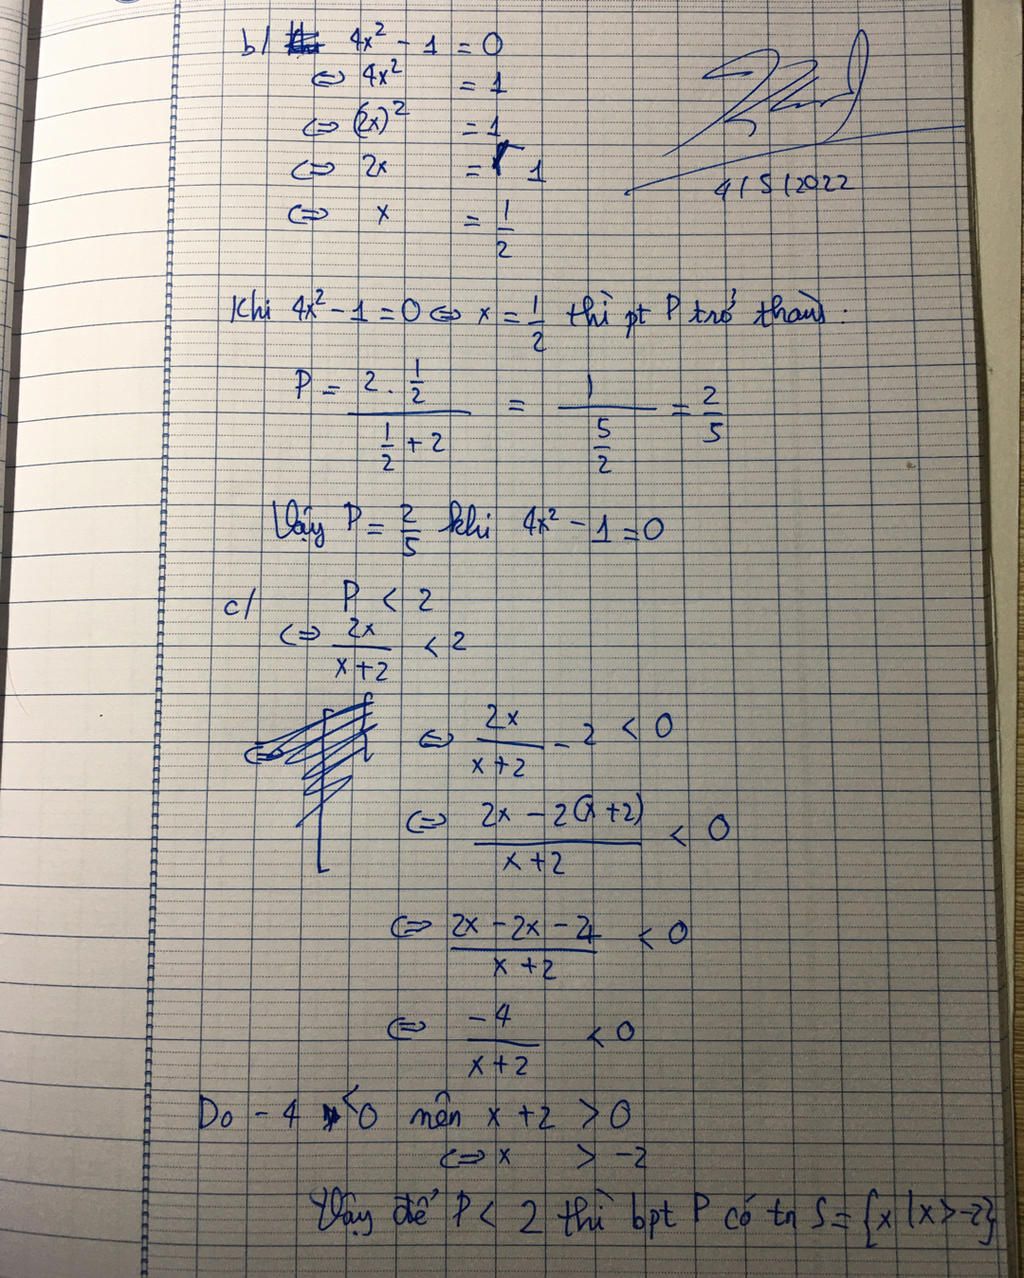 b/ 4x² - 1 = 0
⇔ 4x² = 1
⇔ (2x)² = 1
⇔ 2x = 1
⇔ x = 1/2
4/5/2022
Khi 4x² - 1 = 0 ⇔ x = 1/2 thì pt P trở thành:
P = (2 . 1/2)/(1/2 + 2) = 1/(5/2) = 2/5
Vậy P = 2/5 khi 4x² - 1 = 0
c/ P < 2
⇔ 2x/(x+2) < 2
⇔ 2x/(x+2) - 2 < 0
⇔ (2x - 2(x+2))/(x+2) < 0
⇔ (2x - 2x - 4)/(x+2) < 0
⇔ -4/(x+2) < 0
Do -4 < 0 nên x + 2 > 0
⇔ x > -2
Vậy để P < 2 thì bpt P có tn S = {x | x > -2}